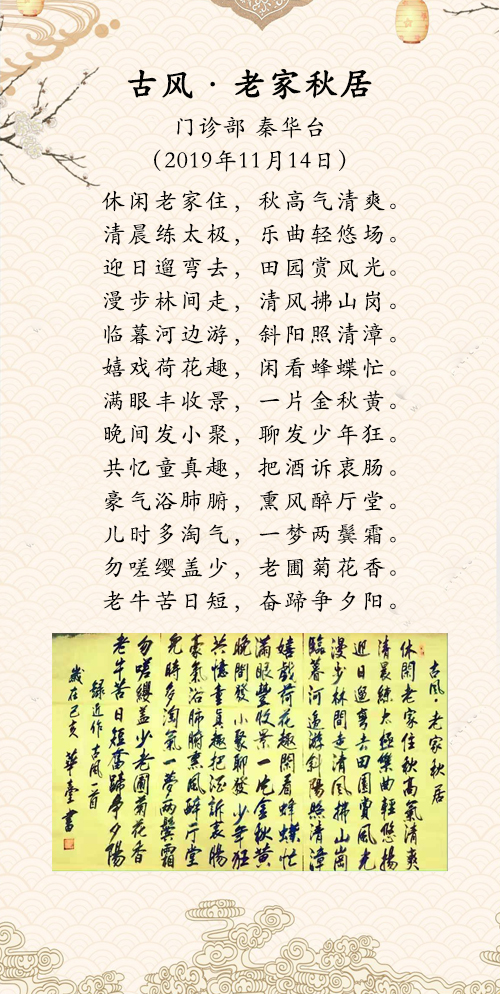 古风·老家秋居
门诊部 秦华台
（2019年11月14日）
休闲老家住，秋高气清爽。
清晨练太极，乐曲轻悠场。
迎日遛弯去，田园赏风光。
漫步林间走，清风拂山岗。
临暮河边游，斜阳照清漳。
嬉戏荷花趣，闲看蜂蝶忙。
满眼丰收景，一片金秋黄。
晚间发小聚，聊发少年狂。
共忆童真趣，把酒诉衷肠。
豪气浴肺腑，熏风醉厅堂。
儿时多淘气，一梦两鬓霜。
勿嗟缨盖少，老圃菊花香。
老牛苦日短，奋蹄争夕阳。
古风·老家秋居
休閑老家住秋高氣清爽
清晨練太極樂曲輕悠揚
迎日遛彎去田園賞風光
漫步林間走清風拂山崗
臨暮河邊游斜陽照清漳
嬉戲荷花趣閑看蜂蝶忙
滿眼豐收景一片金秋黄
晚間發小聚聊發少年狂
共憶童真趣把酒訴衷腸
豪氣浴肺腑熏風醉厅堂
兒時多淘氣一夢两鬢霜
勿嗟纓蓋少老圃菊花香
老牛苦日短奮蹄争夕陽
録近作古風一首
歲在己亥華臺書